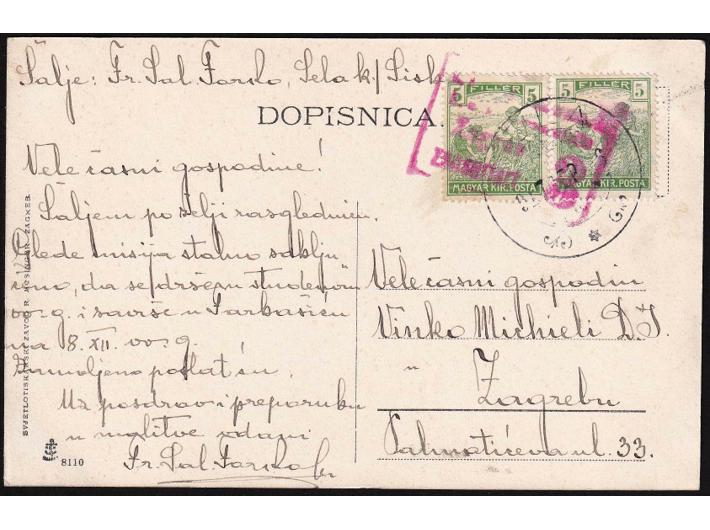 Šalje: Fr. Sal. Farslo, Selak / Sisk
DOPISNICA.
5 FILLER 5
MAGYAR KIR. POSTA
5 FILLER 5
MAGYAR KIR. POSTA
Velečasni gospodine!
Šaljem po želji razglednicu.
Glede misija stalno zaklju
čeno, da se drže u studenom
ov. g. i završe u
na 8. XII. ov. g.
Uz pozdrav i preporuku
u molitve odani
Fr. Sal.
Velečasni gospodin
Vinko Michieli D.I.
u
Zagrebu
Palmotićeva ul. 33.
SVJETLOTISKARSKI ZAVOD R. MOSINGER, ZAGREB.
8110